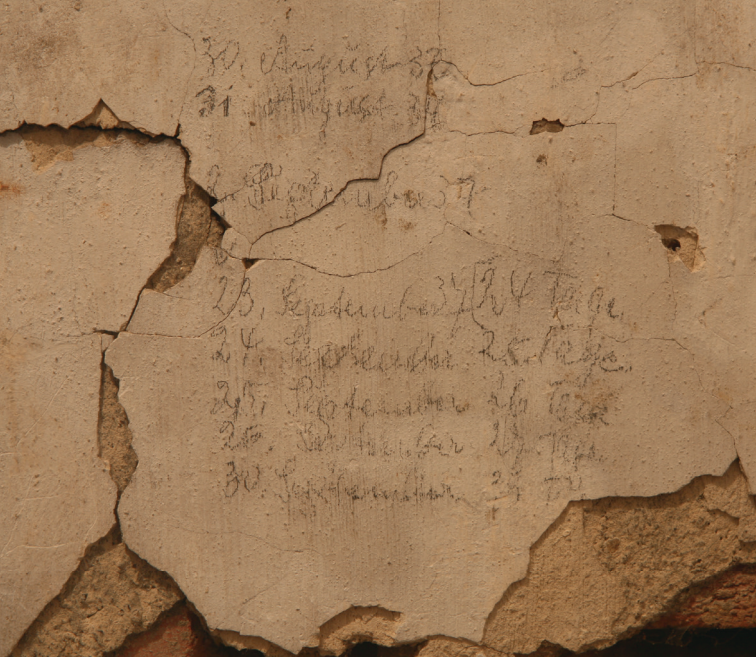 30. August 37
31 August 37
2. September 37
23. September 37 24 Tage.
24. September 25 Tage.
25. September 26 Tage
26. September 27 Tage.
30. September